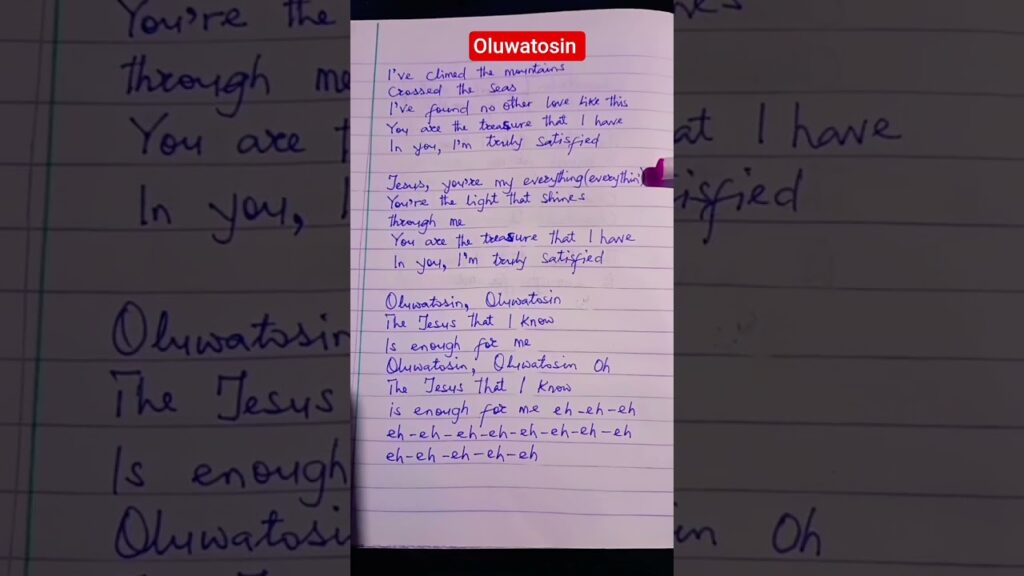 Oluwatosin
I've climed the mountains
Crossed the seas
I've found no other love like this
You are the treasure that I have
In you, I'm truly satisfied
Jesus, you're my everything (everythin
You're the light that shines
through me
You are the treasure that I have
In you, I'm truly satisfied
Oluwatosin, Oluwatosin
The Jesus that I know
Is enough for me
Oluwatosin, Oluwatosin Oh
The Jesus that I know
is enough for me eh-eh-eh
eh-eh-eh-eh-eh-eh-eh-eh
eh-eh-eh-eh-eh